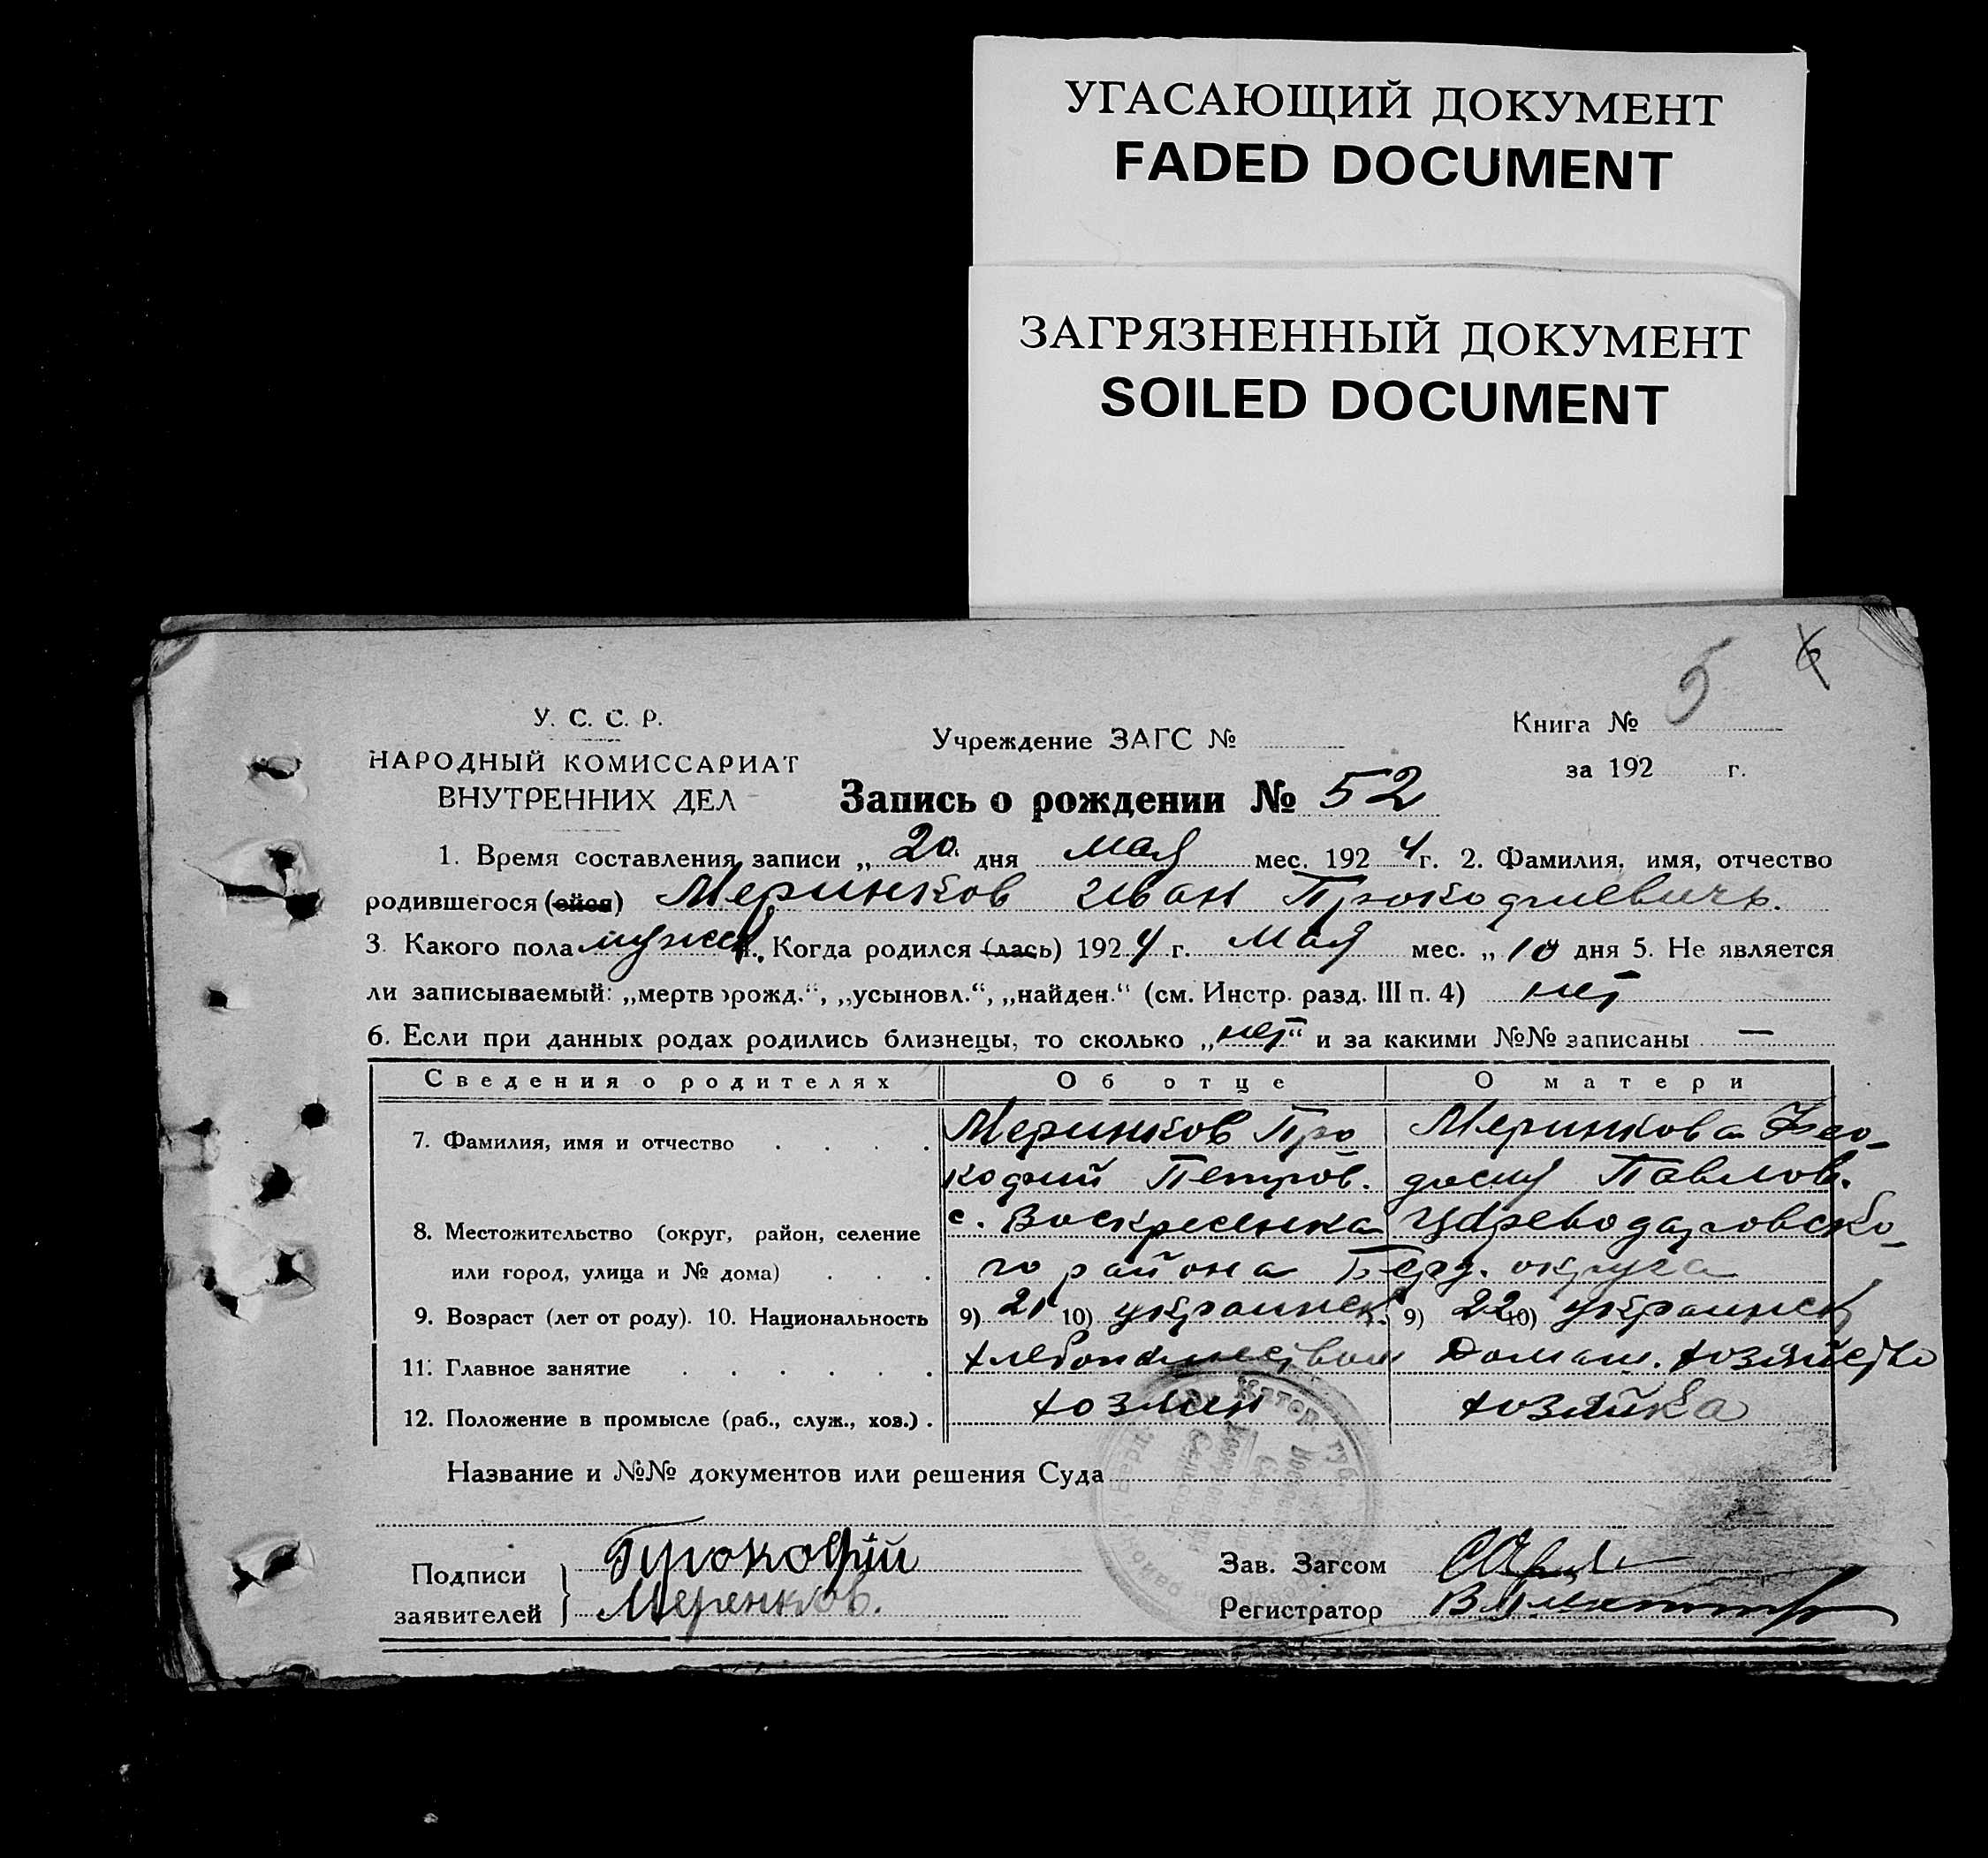 УГАСАЮЩИЙ ДОКУМЕНТ
FADED DOCUMENT
ЗАГРЯЗНЕННЫЙ ДОКУМЕНТ
SOILED DOCUMENT
5
У. С. С. Р.
НАРОДНЫЙ КОМИССАРИАТ
ВНУТРЕННИХ ДЕЛ
Учреждение ЗАГС №
Книга №
за 192 г.
Запись о рождении № 52
1. Время составления записи „ 20 дня мая мес. 1924 г. 2. Фамилия, имя, отчество
родившегося (ейся) Меринков Иван Прокофиевичъ.
3. Какого пола мужск 4. Когда родился (лась) 1924 г. Мая мес. „ 10 дня 5. Не является
ли записываемый: „мертворожд.“, „усыновл.“, „найден.“ (см. Инстр. разд. III п. 4) нет
6. Если при данных родах родились близнецы, то сколько „нет“ и за какими №№ записаны —
Сведения о родителях Об отце О матери
7. Фамилия, имя и отчество . . . . Меринков Про Меринкова Фео-
кофий Петров. досия Павлов.
8. Местожительство (округ, район, селение с. Воскресенка Цареводаровско-
или город, улица и № дома) . . . го района Берд. округа
9. Возраст (лет от роду). 10. Национальность 9) 21 10) украинск. 9) 22 10) украинск
11. Главное занятие . . . . . . хлебопашеством Домаш. хозяйство
12. Положение в промысле (раб., служ., хоз.) . хозяин хозяйка
Название и №№ документов или решения Суда
Подписи
заявителей
Прокофій
Меренков.
Зав. Загсом
Регистратор